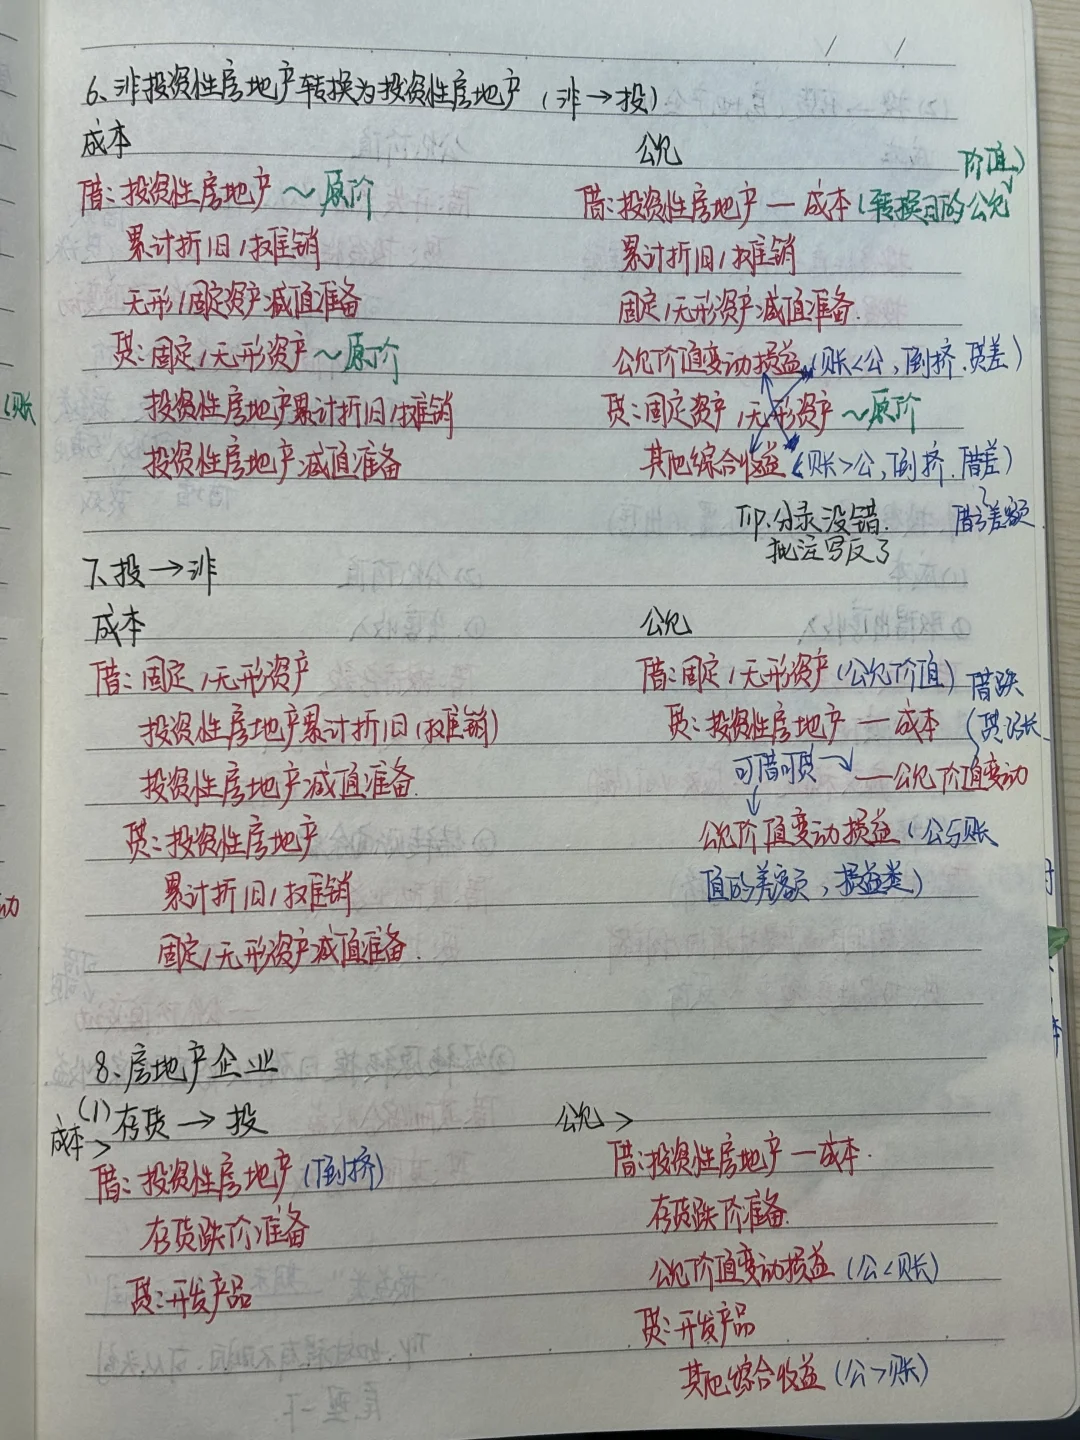 6、非投资性房地产转换为投资性房地产（非→投）
成本
借：投资性房地产～原价
累计折旧/摊销
无形/固定资产减值准备
贷：固定/无形资产～原价
投资性房地产累计折旧/摊销
投资性房地产减值准备
公允
借：投资性房地产—成本（转换日的公允价值）
累计折旧/摊销
固定/无形资产减值准备.
公允价值变动损益（账<公，倒挤.贷差）
贷：固定资产/无形资产～原价
其他综合收益（账>公，倒挤.借差）
借方差额
TIP.分录没错.
批注写反了
7、投→非
成本
借：固定/无形资产
投资性房地产累计折旧/（摊销）
投资性房地产减值准备.
贷：投资性房地产
累计折旧/摊销
固定/无形资产减值准备.
公允
借：固定/无形资产（公允价值）
贷：投资性房地产—成本
借跌
贷涨
可借可贷
—公允价值变动
公允价值变动损益（公与账
值的差额，损益类）
8、房地产企业
(1)存货→投
成本>
借：投资性房地产（倒挤）
存货跌价准备
贷：开发产品
公允>
借：投资性房地产—成本.
存货跌价准备.
公允价值变动损益（公<账）
贷：开发产品
其他综合收益（公>账）
（账
动